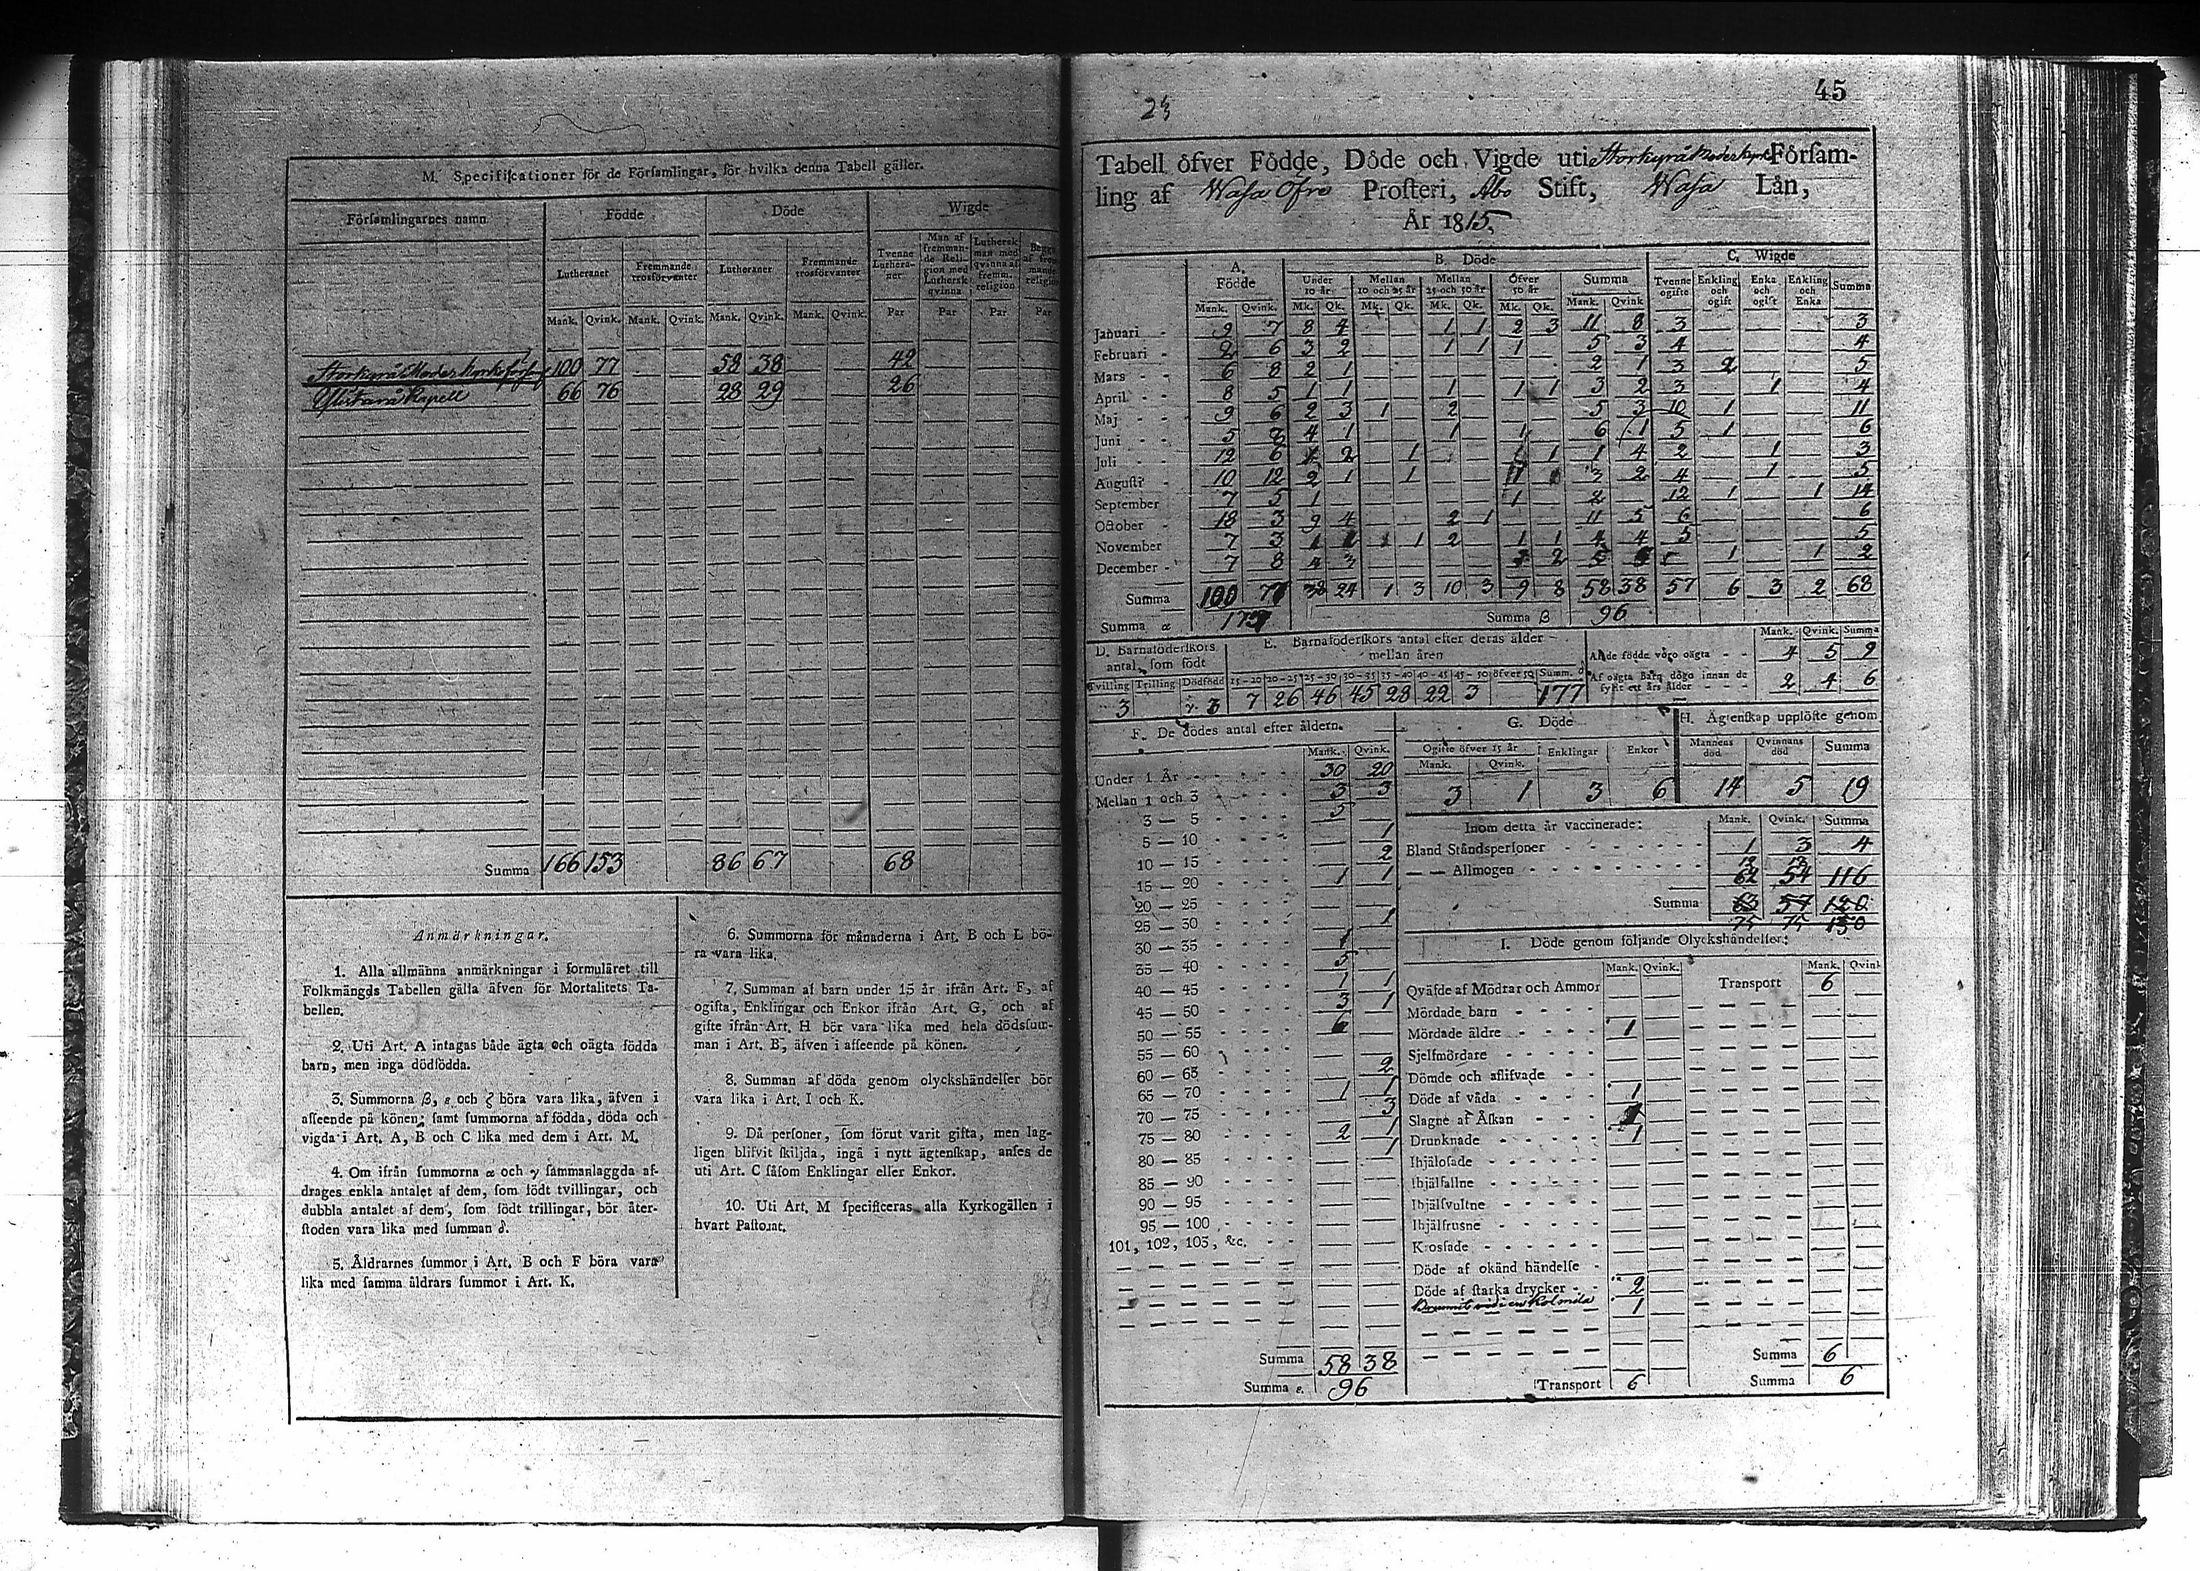 M. Specificationer för de Församlingar, för hvilka denna Tabell gäller.
Församlingarnes namn Födde Döde Wigde
Lutheraner Fremmande trosförvanter Lutheraner Fremmande trosförvanter Tvenne Lutheraner Man af fremmande Religion med Luthersk qvinna Luthersk man med qvinna af fremm. religion
Mank. Qvink. Mank. Qvink. Mank. Qvink. Mank. Qvink. Par Par Par Par
Storkyrå Moderkyrkoförs 100 77 58 38 42
Ylistaro Kapell 66 76 28 29 26
Summa 166 153 86 67 68
Anmärkningar.
1. Alla allmänna anmärkningar i formuläret till
Folkmängds Tabellen gälla äfven för Mortalitets Ta-
bellen.
2. Uti Art. A intagas både ägta och oägta födda
barn, men inga dödfödda.
3. Summorna β, ε och ζ böra vara lika, äfven i
afseende på könen; samt summorna af födda, döda och
vigda i Art. A, B och C lika med dem i Art. M.
4. Om ifrån summorna α och γ sammanlaggda af-
drages enkla antalet af dem, som födt tvillingar, och
dubbla antalet af dem, som födt trillingar, bör åter-
stoden vara lika med summan δ.
5. Åldrarnes summor i Art. B och F böra vara
lika med samma åldrars summor i Art. K.
6. Summorna för månaderna i Art. B och L bö-
ra vara lika.
7. Summan af barn under 15 år ifrån Art. F, af
ogifta, Enklingar och Enkor ifrån Art. G, och af
gifte ifrån Art. H bör vara lika med hela dödsum-
man i Art. B, äfven i afseende på könen.
8. Summan af döda genom olyckshändelser bör
vara lika i Art. I och K.
9. Då personer, som förut varit gifta, men lag-
ligen blifvit skiljda, ingå i nytt ägtenskap, anses de
uti Art. C såsom Enklingar eller Enkor.
10. Uti Art. M specificeras alla Kyrkogällen i
hvart Pastorat.
45
Tabell öfver Födde, Döde och Vigde uti Storkyrå Moderkyrk Församling
af Wasa Öfre Prosteri, Åbo Stift, Wasa Län,
År 1815.
A. Födde B. Döde C. Wigde
Under 10 år Mellan 10 och 25 år Mellan 25 och 50 år Öfver 50 år Summa Tvenne ogifte Enkling och ogift Enka och ogift Enkling och Enka Summa
Mank. Qvink. Mk. Qk. Mk. Qk. Mk. Qk. Mk. Qk. Mank. Qvink
Januari 9 7 8 4 1 1 2 3 11 8 3 3
Februari 2 6 3 2 1 1 1 5 3 4 4
Mars 6 8 2 1 2 1 3 2 5
April 8 5 1 1 1 1 1 3 2 3 1 4
Maj 9 6 2 3 1 2 5 3 10 1 11
Juni 5 8 4 1 1 1 6 1 5 1 6
Juli 12 6 2 1 1 1 1 4 2 1 3
Augusti 10 12 2 1 1 3 2 4 1 5
September 7 5 1 1 2 12 1 1 14
October 18 3 9 4 2 1 11 5 6 6
November 7 3 1 1 1 2 1 1 4 4 5 5
December 7 8 4 3 2 5 1 1 2
Summa 100 77 38 24 1 3 10 3 9 8 58 38 57 6 3 2 68
Summa α 177 Summa β 96
D. Barnaföderskors antal, som födt
Tvilling Trilling Dödfödd
3 γ. 3
E. Barnaföderskors antal efter deras ålder mellan åren
15-20 20-25 25-30 30-35 35-40 40-45 45-50 öfver 50 Summ. δ
7 26 46 45 28 22 3 177
Mank. Qvink. Summa
Af de födde voro oägta 4 5 9
Af oägta Barn dögo innan de fyllt ett års ålder 2 4 6
F. De dödes antal efter åldern.
Mank. Qvink.
Under 1 År 30 20
Mellan 1 och 3 3 3
3 — 5 5
5 — 10 1
10 — 15 2
15 — 20 1 1
20 — 25
25 — 30 1
30 — 35 1
35 — 40 5
40 — 45 1 1
45 — 50 3 1
50 — 55 6
55 — 60
60 — 65 2
65 — 70 1 1
70 — 75 3
75 — 80 2 1
80 — 85 1
85 — 90
90 — 95
95 — 100
101, 102, 103, &c.
Summa 58 38
Summa ε. 96
G. Döde
Ogifte öfver 15 år Enklingar Enkor
Mank. Qvink.
3 1 3 6
H. Ägtenskap upplöste genom
Mannens död Qvinnans död Summa
14 5 19
Inom detta år vaccinerade: Mank. Qvink. Summa
Bland Ståndspersoner 1 3 4
12 18
— — Allmogen 62 54 116
Summa 63 57 120
75 75 150
I. Döde genom följande Olyckshändelser:
Mank. Qvink. Mank. Qvink
Qväfde af Mödrar och Ammor Transport 6
Mördade barn
Mördade äldre 1
Sjelfmördare
Dömde och aflifvade
Döde af våda 1
Slagne af Åskan
Drunknade 1
Ihjälosade
Ihjälfallne
Ihjälsvultne
Ihjälfrusne
Krossade
Döde af okänd händelse
Döde af starka drycker 2
Brunnit vid en Kolmila 1
Summa 6
Transport 6 Summa 6